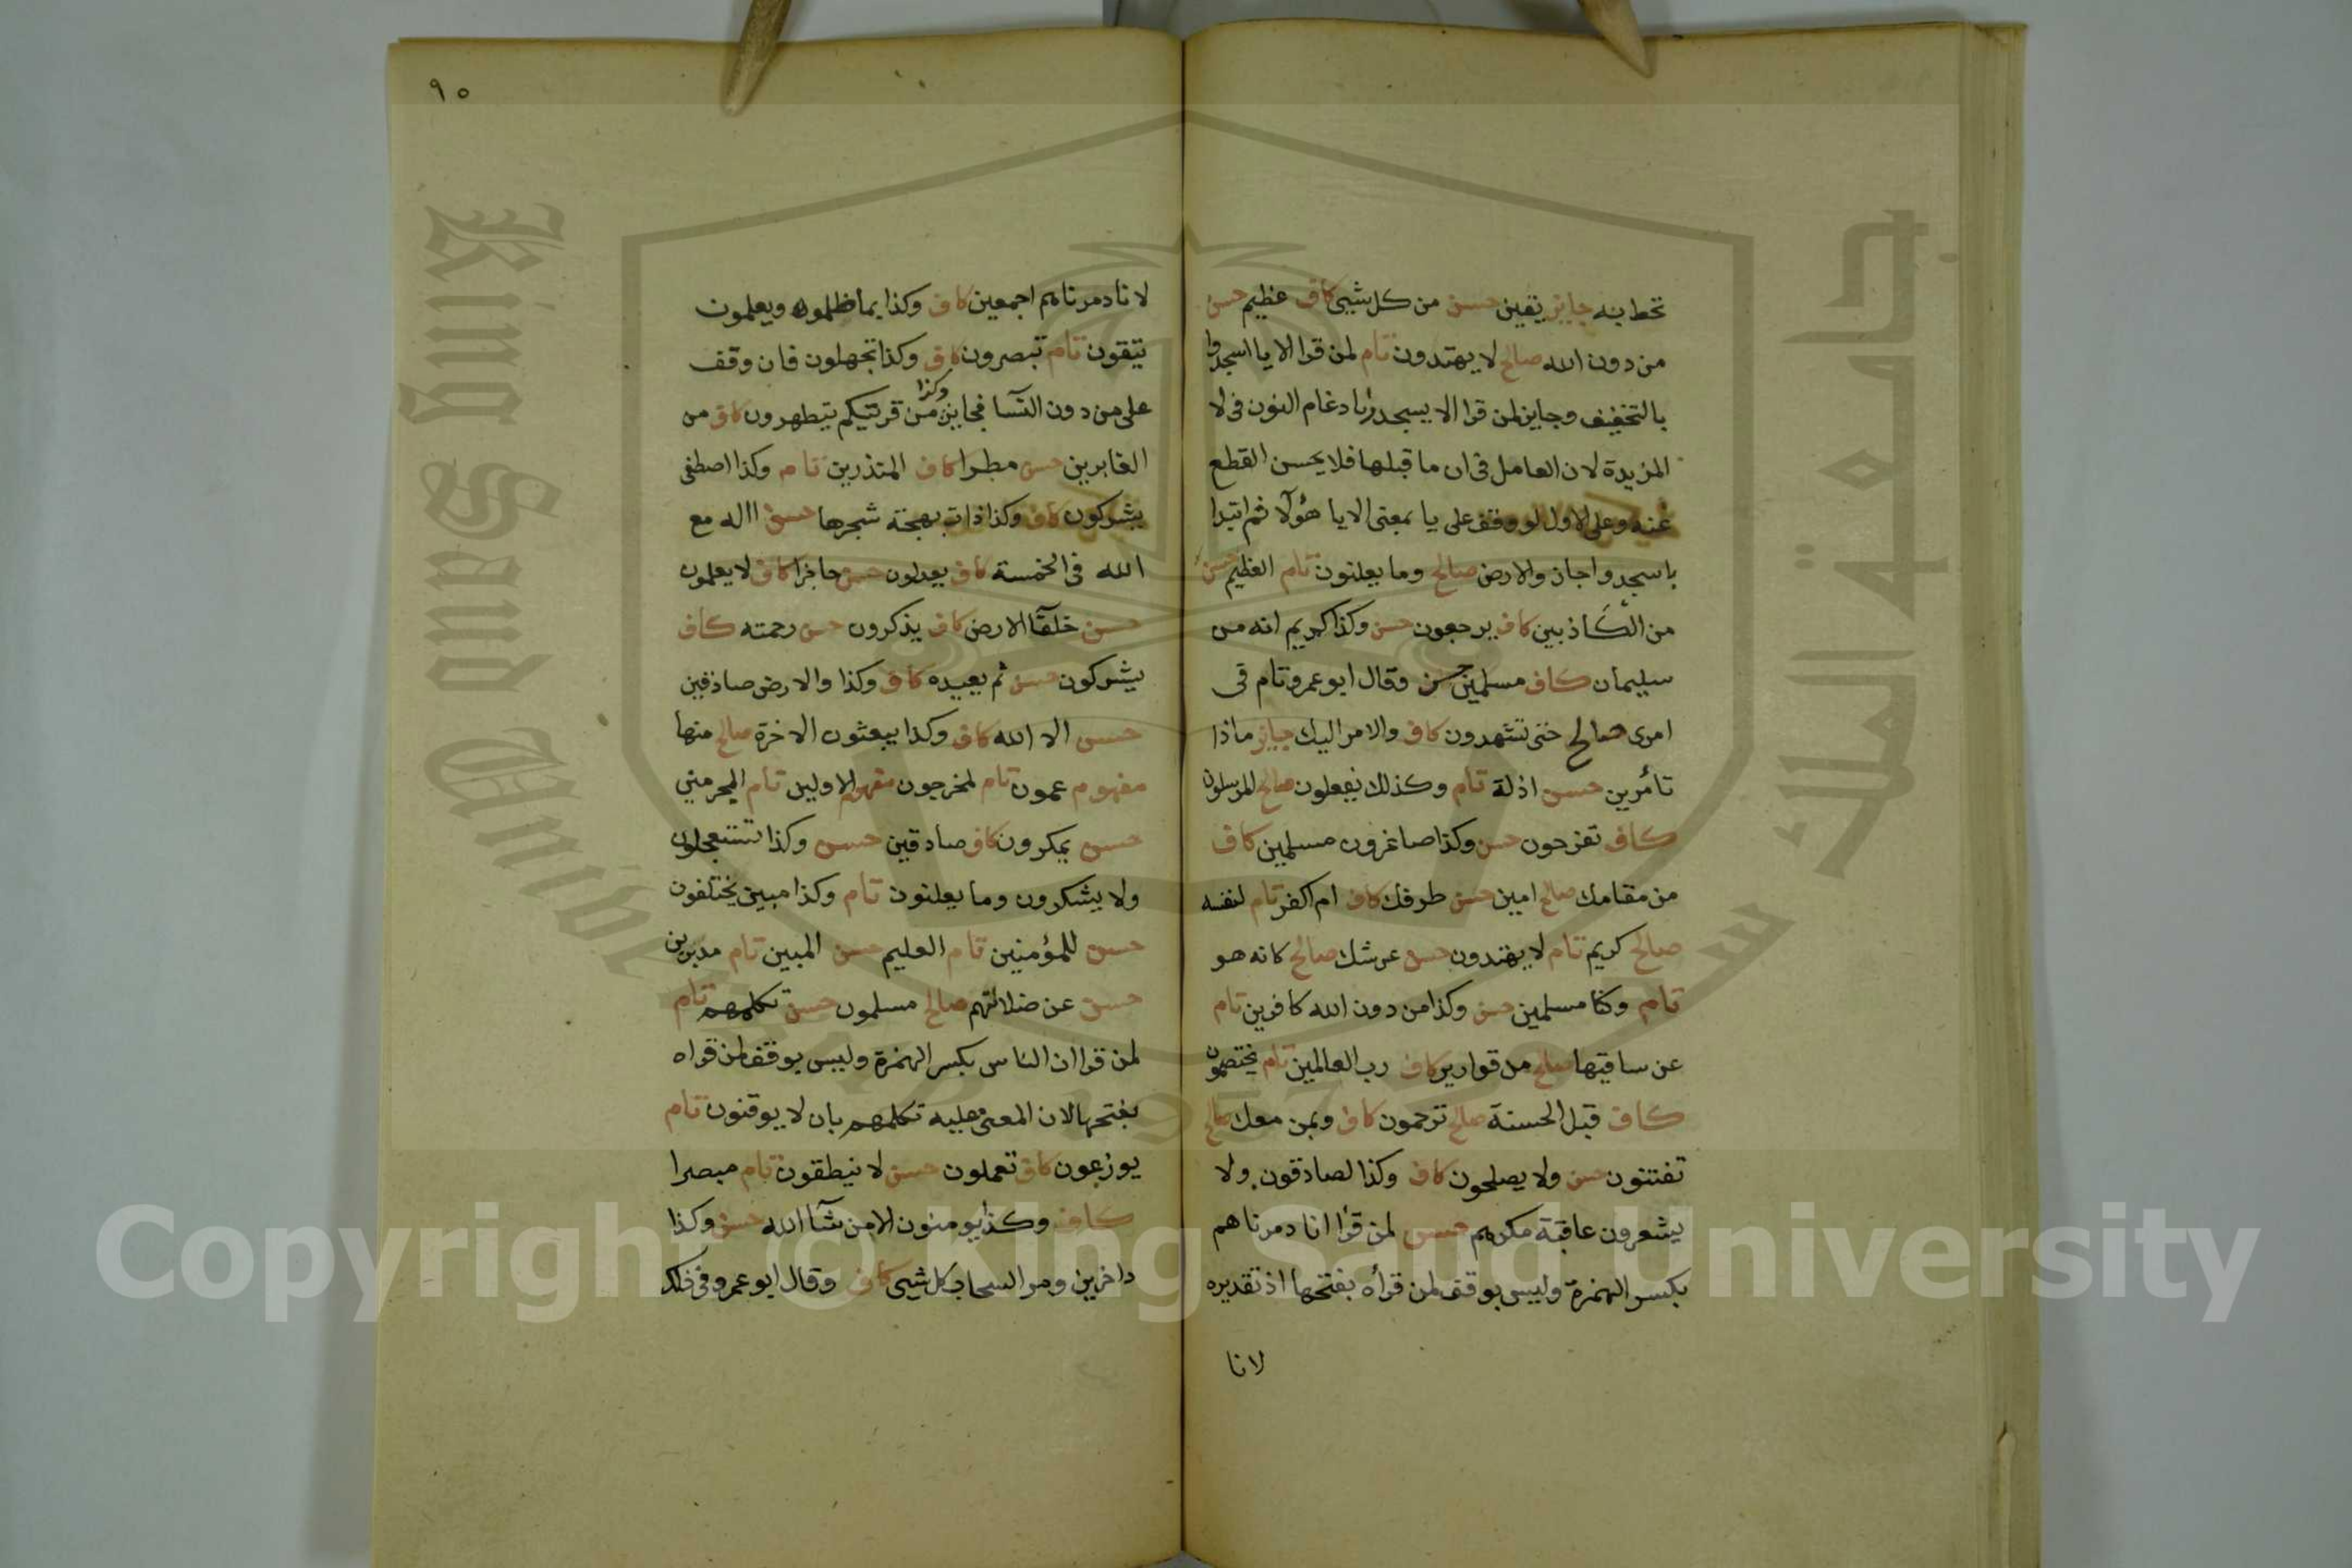 تحط به جايز يقين حسن من كل شيى كاف عظيم حسن
من دون الله صالح لا يهتدون تام لمن قرا الا يا اسجدوا
بالتخفيف وجايز لمن قرا الا يسجدوا بادغام النون فى لا
المزيدة لان العامل فى ان ما قبلها فلا يحسن القطع
عنه وعلى الاول لو وقف على يا بمعنى الا يا هؤلآ ثم ابتدا
باسجدوا جاز والارض صالح وما يعلنون تام العظيم حسن
من الكاذبين كاف يرجعون حسن وكذا كريم انه من
سليمان كاف مسلمين حسن وقال ابو عمرو تام فى
امرى صالح حتى تشهدون كاف والامر اليك جايز ماذا
تأمرين حسن اذلة تام وكذلك يفعلون صالح المرسلون
كاف تفرحون حسن وكذا صاغرون مسلمين كاف
من مقامك صالح امين حسن طرفك كاف ام اكفر تام لنفسه
صالح كريم تام لا يهتدون حسن عرشك صالح كانه هو
تام وكنا مسلمين حسن وكذا من دون الله كافرين تام
عن ساقيها صالح من قوارير كاف رب العالمين تام يختصمون
كاف قبل الحسنة صالح ترحمون كاف وبمن معك صالح
تفتنون حسن ولا يصلحون كاف وكذا لصادقون ولا
يشعرون عاقبة مكرهم حسن لمن قرا انا دمرناهم
بكسر الهمزة وليس بوقف لمن قرأه بفتحها اذ تقديره
لانا
٩٥
لانا دمرناهم اجمعين كاف وكذا بما ظلموا ويعلمون
يتقون تام تبصرون كاف وكذا تجهلون فان وقف
على من دون النسآ فجايز وكذا من قريتكم يتطهرون كاف من
الغابرين حسن مطرا كاف المنذرين تام وكذا اصطفى
يشركون كاف وكذا ذات بهجة شجرها حسن االه مع
الله فى الخمسة كاف يعدلون حسن حاجزا كاف لا يعلمون
حسن خلفآ الارض كاف يذكرون حسن رحمته كاف
يشركون حسن ثم يعيده كاف وكذا والارض صادقين
حسن الا الله كاف وكذا يبعثون الاخرة صالح منها
مفهوم عمون تام لمخرجون مفهوم الاولين تام المجرمين
حسن يمكرون كاف صادقين حسن وكذا تستعجلون
ولا يشكرون وما يعلنون تام وكذا مبين يختلفون
حسن للمؤمنين تام العليم حسن المبين تام مدبرين
حسن عن ضلالتهم صالح مسلمون حسن تكلمهم تام
لمن قرا ان الناس بكسر الهمزة وليس بوقف لمن قراه
بفتحها لان المعنى عليه تكلمهم بان لا يوقنون تام
يوزعون كاف تعملون حسن لا ينطقون تام مبصرا
كاف وكذا يومنون الا من شآ الله حسن وكذا
داخرين ومر السحاب كل شيى كاف وقال ابو عمرو فى
King Saud University
جامعة الملك سعود
1957
Copyright © King Saud University